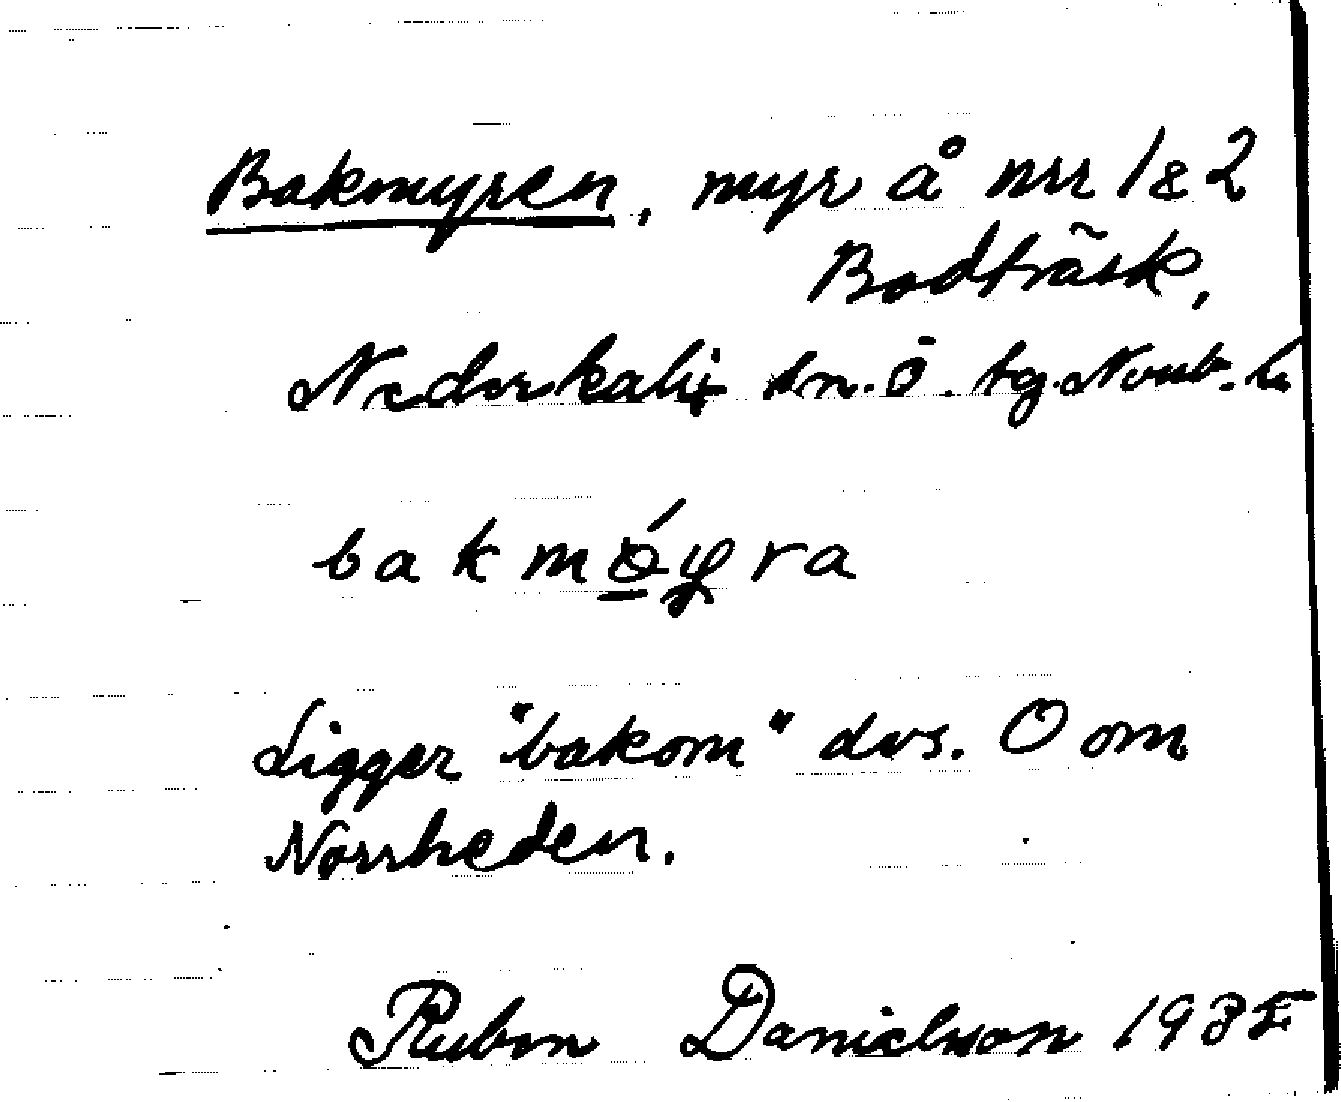 Bakmyren, myr å nrr 1 & 2
Bodträsk,
Nederkalix sn. Ö. tg. Norrb. l.
bakmǿyra
Ligger "bakom" dvs. O om
Norrheden.
Ruben Danielsson 1935